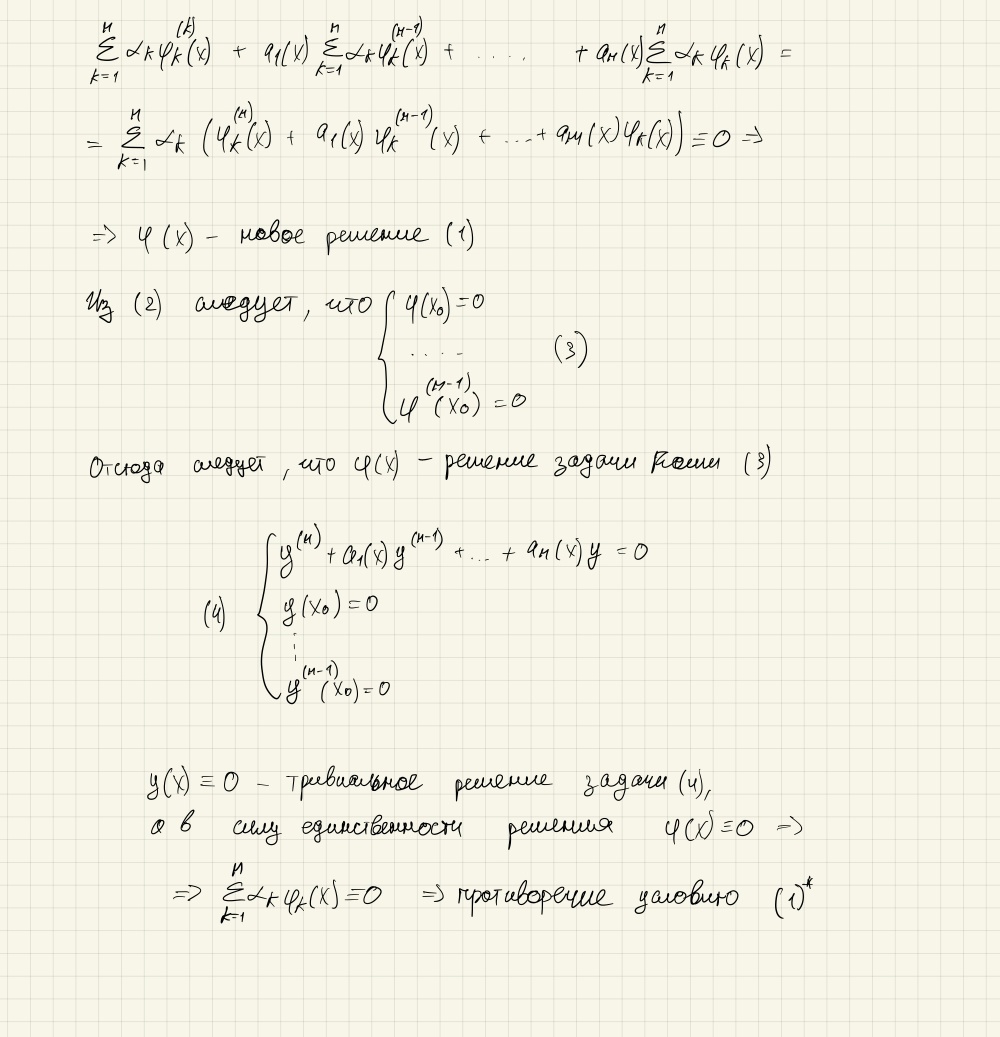 n∑k=1 αₖφₖ⁽ᵏ⁾(x) + a₁(x) n∑k=1 αₖφₖ⁽ⁿ⁻¹⁾(x) + .... + aₙ(x) n∑k=1 αₖφₖ(x) =
= n∑k=1 αₖ (φₖ⁽ⁿ⁾(x) + a₁(x) φₖ⁽ⁿ⁻¹⁾(x) + ... + aₙ(x)φₖ(x)) ≡ 0 =>
=> φ(x) – новое решение (1)
Из (2) следует, что { φ(x₀) = 0
.... (3)
φ⁽ⁿ⁻¹⁾(x₀) = 0
Отсюда следует, что φ(x) – решение задачи Коши (3)
(4) { y⁽ⁿ⁾ + a₁(x) y⁽ⁿ⁻¹⁾ + ... + aₙ(x) y = 0
y(x₀) = 0
⋮
y⁽ⁿ⁻¹⁾(x₀) = 0
y(x) ≡ 0 – тривиальное решение задачи (4),
а в силу единственности решения φ(x) ≡ 0 =>
=> n∑k=1 αₖφₖ(x) ≡ 0 => противоречие условию (1)*